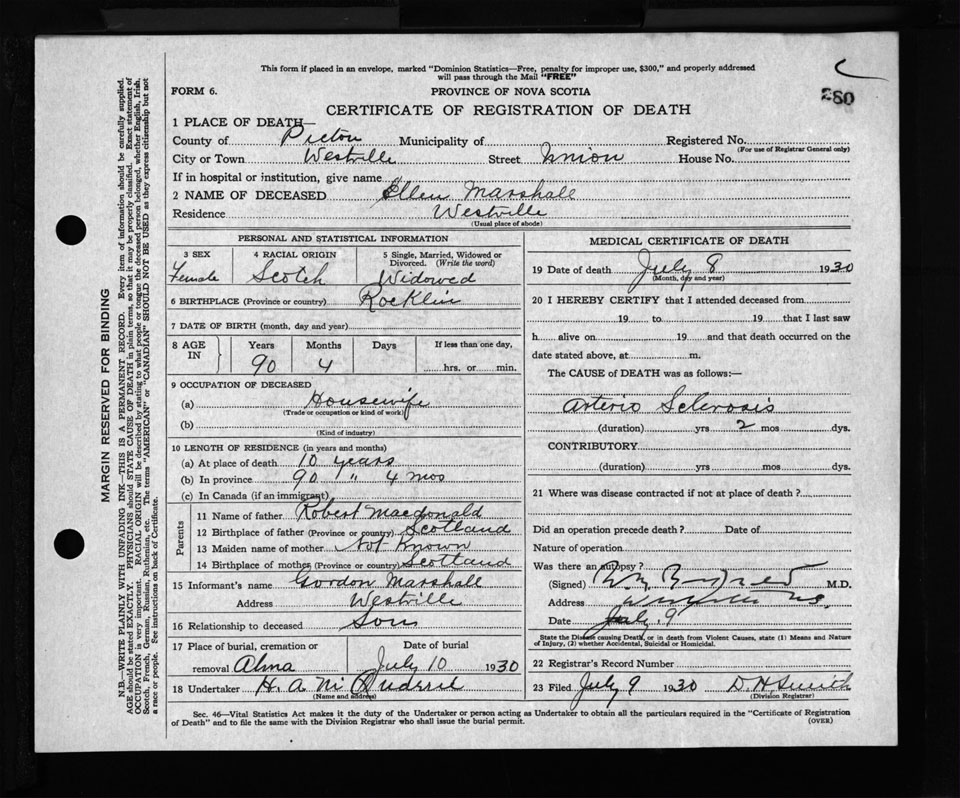 This form if placed in an envelope, marked "Dominion Statistics—Free, penalty for improper use, $300," and properly addressed
will pass through the Mail "FREE"
280
FORM 6.
PROVINCE OF NOVA SCOTIA
CERTIFICATE OF REGISTRATION OF DEATH
1 PLACE OF DEATH—
County of Pictou Municipality of Registered No.
(For use of Registrar General only)
City or Town Westville Street Union House No.
If in hospital or institution, give name
2 NAME OF DECEASED Ellen Marshall
Residence Westville
(Usual place of abode)
PERSONAL AND STATISTICAL INFORMATION
3 SEX 4 RACIAL ORIGIN 5 Single, Married, Widowed or
Divorced. (Write the word)
Female Scotch Widowed
6 BIRTHPLACE (Province or country) Rocklin
7 DATE OF BIRTH (month, day and year)
8 AGE IN Years Months Days If less than one day,
90 4 hrs. or min.
9 OCCUPATION OF DECEASED
(a) Housewife
(Trade or occupation or kind of work)
(b)
(Kind of industry)
10 LENGTH OF RESIDENCE (in years and months)
(a) At place of death 10 years
(b) In province 90 " 4 mos
(c) In Canada (if an immigrant)
Parents
11 Name of father Robert Macdonald
12 Birthplace of father (Province or country) Scotland
13 Maiden name of mother Not known
14 Birthplace of mother (Province or country) Scotland
15 Informant's name Gordon Marshall
Address Westville
16 Relationship to deceased Son
17 Place of burial, cremation or Date of burial
removal Alma July 10 1930
18 Undertaker H. A.
(Name and address)
MEDICAL CERTIFICATE OF DEATH
19 Date of death July 8 1930
(Month, day and year)
20 I HEREBY CERTIFY that I attended deceased from
19 to 19 that I last saw
h alive on 19 and that death occurred on the
date stated above, at m.
The CAUSE of DEATH was as follows:—
Arterio Sclerosis
(duration) yrs 2 mos dys.
CONTRIBUTORY
(duration) yrs mos dys.
21 Where was disease contracted if not at place of death?
Did an operation precede death? Date of
Nature of operation
Was there an autopsy?
(Signed) M.D.
Address N.S.
Date July 9
State the Disease causing Death, or in death from Violent Causes, state (1) Means and Nature
of Injury, (2) whether Accidental, Suicidal or Homicidal.
22 Registrar's Record Number
23 Filed July 9 1930 D H Smith
(Division Registrar)
Sec. 46—Vital Statistics Act makes it the duty of the Undertaker or person acting as Undertaker to obtain all the particulars required in the "Certificate of Registration
of Death" and to file the same with the Division Registrar who shall issue the burial permit.
(OVER)
MARGIN RESERVED FOR BINDING
N.B.—WRITE PLAINLY WITH UNFADING INK—THIS IS A PERMANENT RECORD. Every item of information should be carefully supplied.
AGE should be stated EXACTLY. PHYSICIANS should STATE CAUSE OF DEATH in plain terms, so that it may be properly classified. Exact statement of
OCCUPATION is very important. RACIAL ORIGIN will be described by stating to what people or tongue the deceased person belonged, whether English, Irish,
Scotch, French, German, Russian, Ruthenian, etc. The terms "AMERICAN" or "CANADIAN" SHOULD NOT BE USED as they express citizenship but not
a race or people. See instructions on back of Certificate.